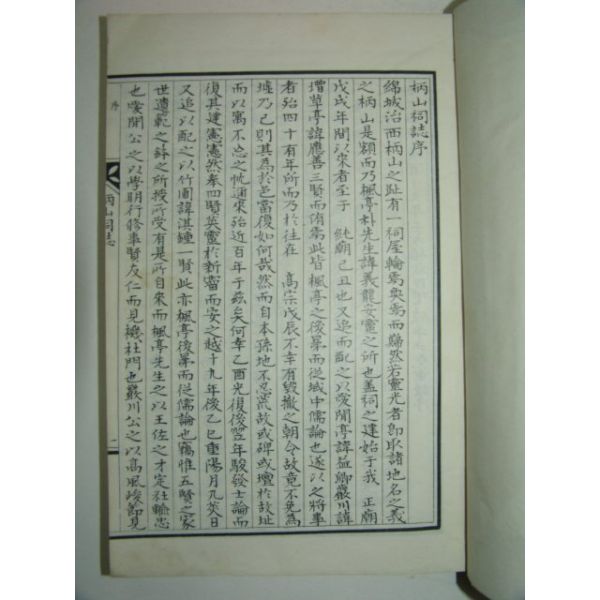 柄山祠誌序
綿城治西柄山之趾有一祠屋輪焉奐焉而歸然若靈光者即取諸地名之義
之柄山是額而乃楓亭朴先生諱義龍妥靈之所也盖祠之建始于我 正廟
戊戌年間以來者至于 純廟己丑也又追而配之以愛閒亭諱益卿巖川諱
增華亭諱應善三賢而侑焉此皆楓亭之後昴而從域中儒論也遂以之將事
者殆四十有年所而乃於往在 高宗戊辰不幸有毀撤之朝令故竟不免爲
墟乃已則其爲於邑當復如何哉然而自本孫地不忍荒故或碑或壇於故址
而以寓不忘之忱通來殆近百年于玆矣何幸乙酉光復後翌年駿發士論而
復其建憲憲然奉四賢英靈於新甯而安之越十九年後乙巳重陽月九莢日
又追以配之以竹圃諱淇鍾一賢此亦楓亭後昴而從儒論也竊惟五賢之家
世遺範之詩之所授所受有是所自來而楓亭先生之以王佐之才定社輸忠
也愛閒公之以學明行修事賢友仁而見機杜門也巖川公之以高風峻節見
序
柄山祠誌
一